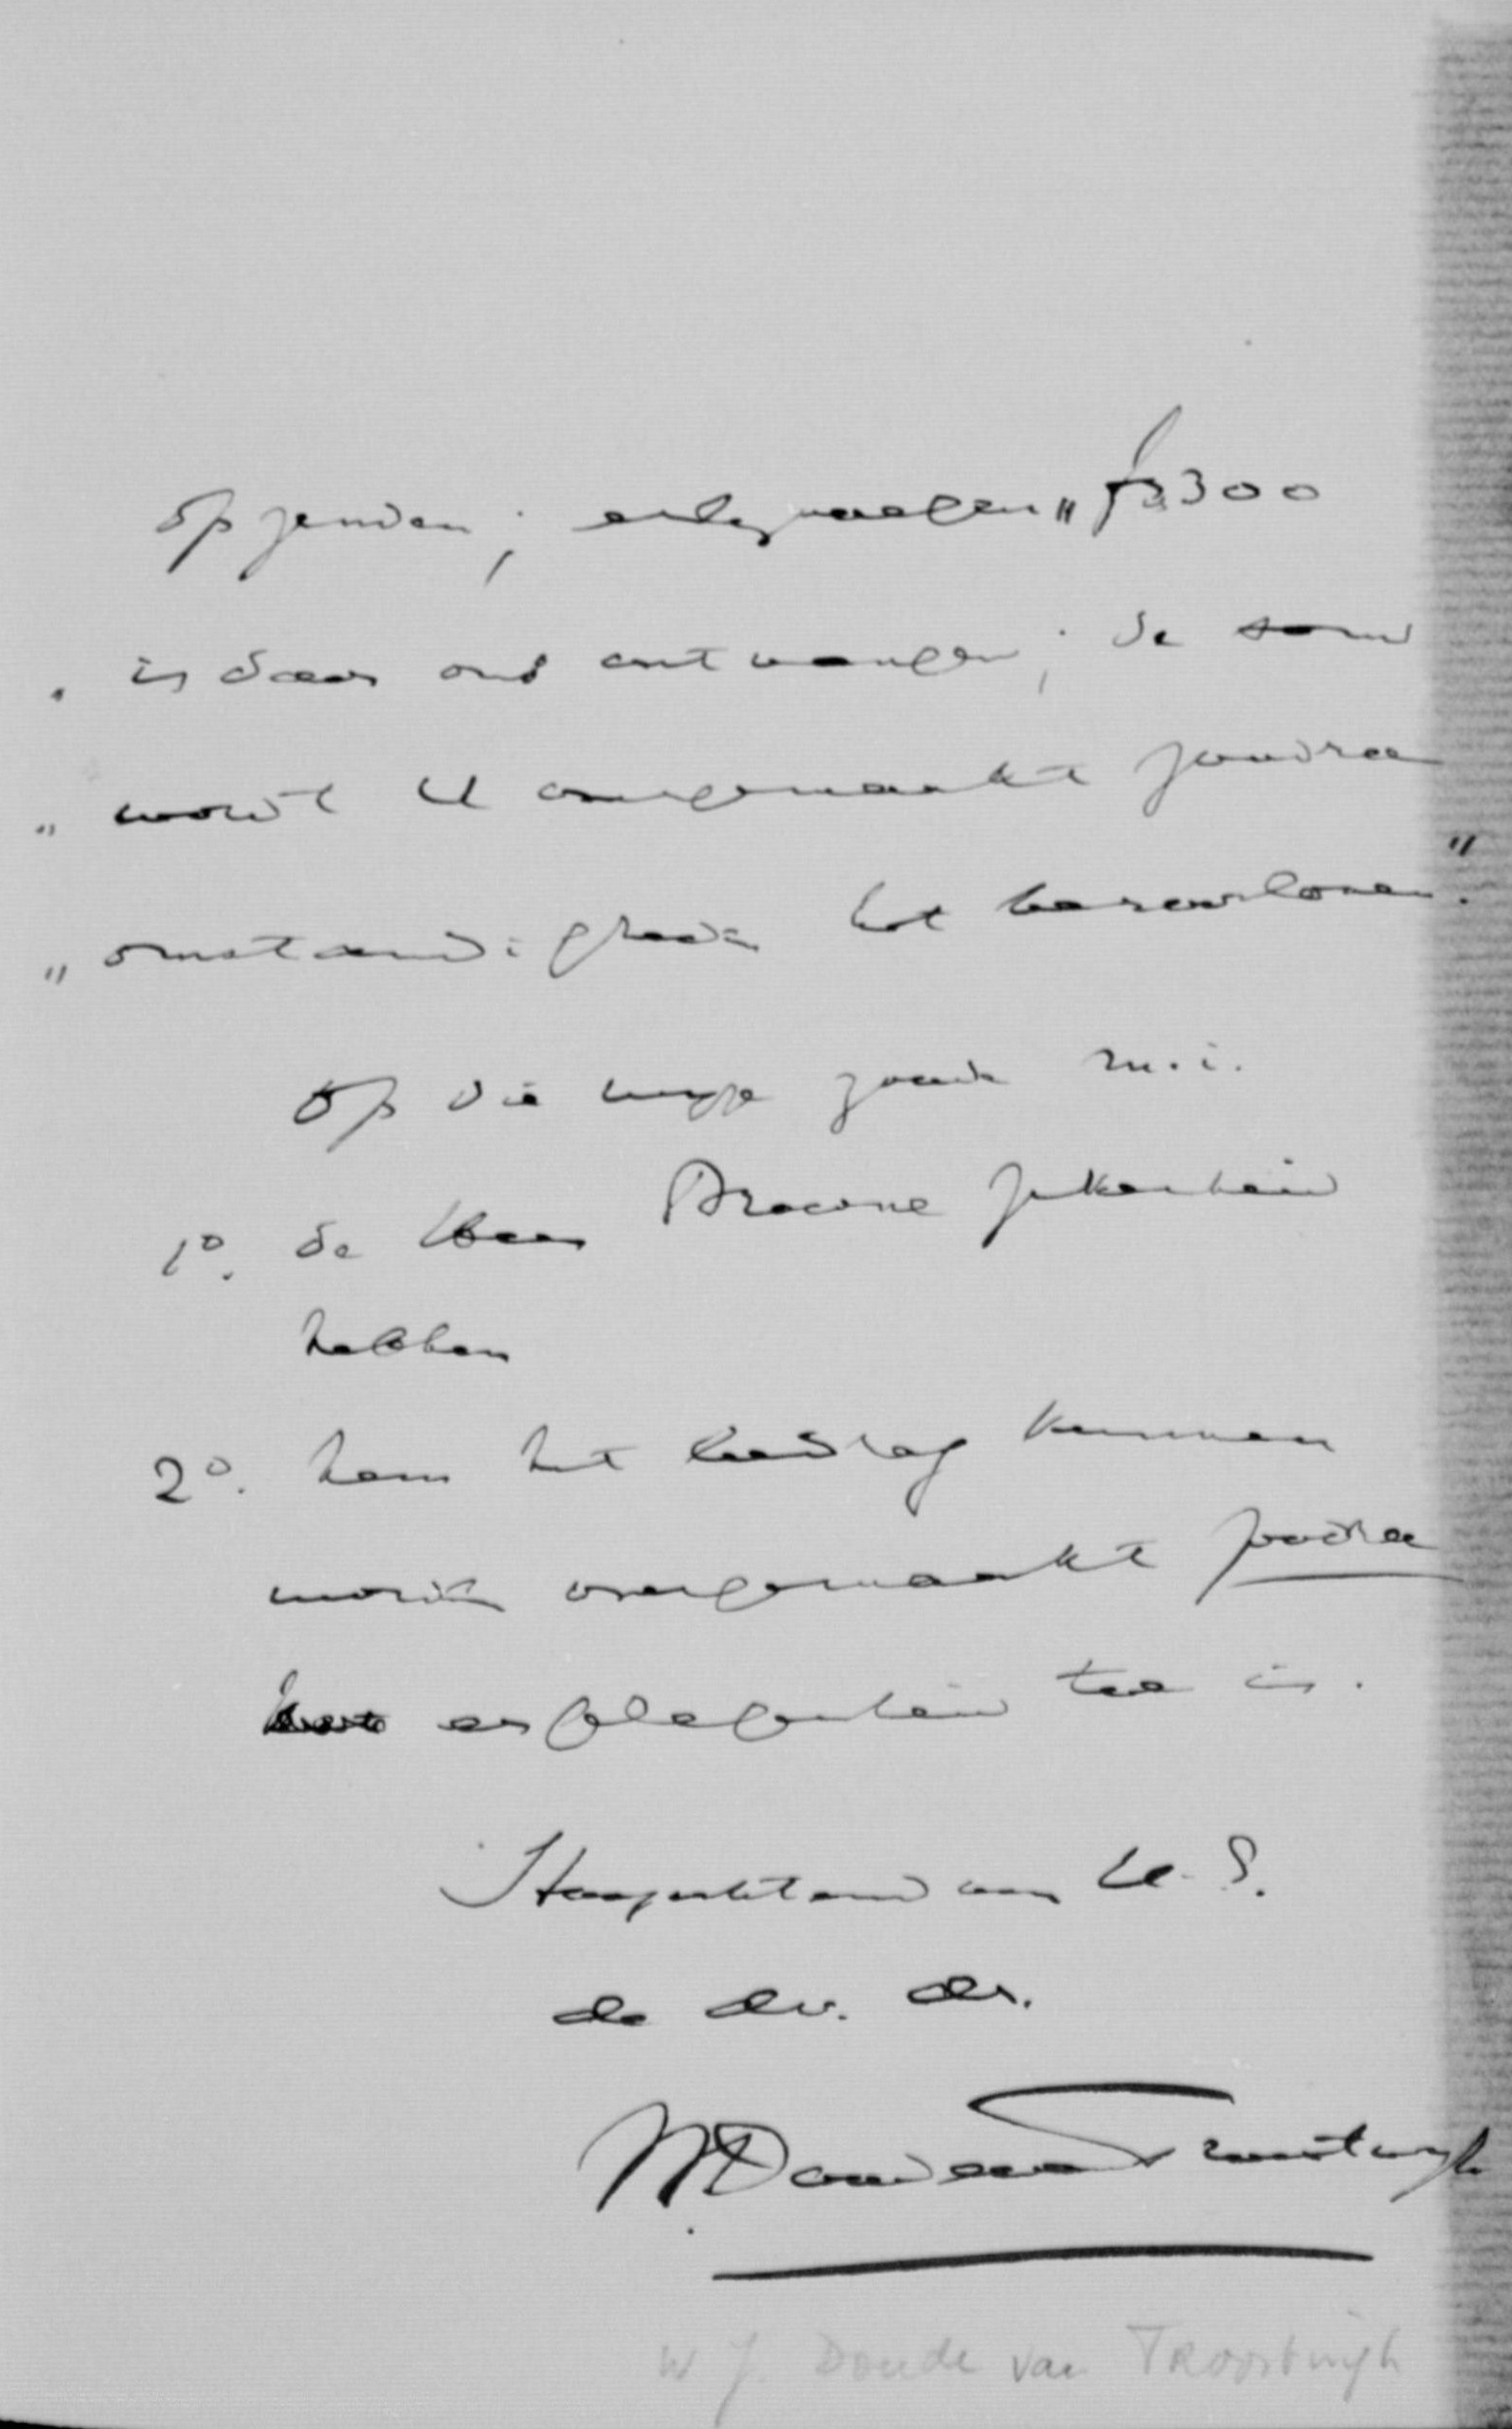 op zenden; " f 3300
" is door ons ontvangen; de som
" wordt U overgemaakt zoodra
" omstandigheden het veroorloven."
Op die wijze zoude m.i.
1º. de Heer Browne zekerheid
hebben
2º. hem het bedrag kunnen
worden overgemaakt zoodra
er gelegenheid toe is.
Hoogachtend van U. S.
de dv. dr.
WDoude van Troostwijk
W J. Doude van Troostwijk